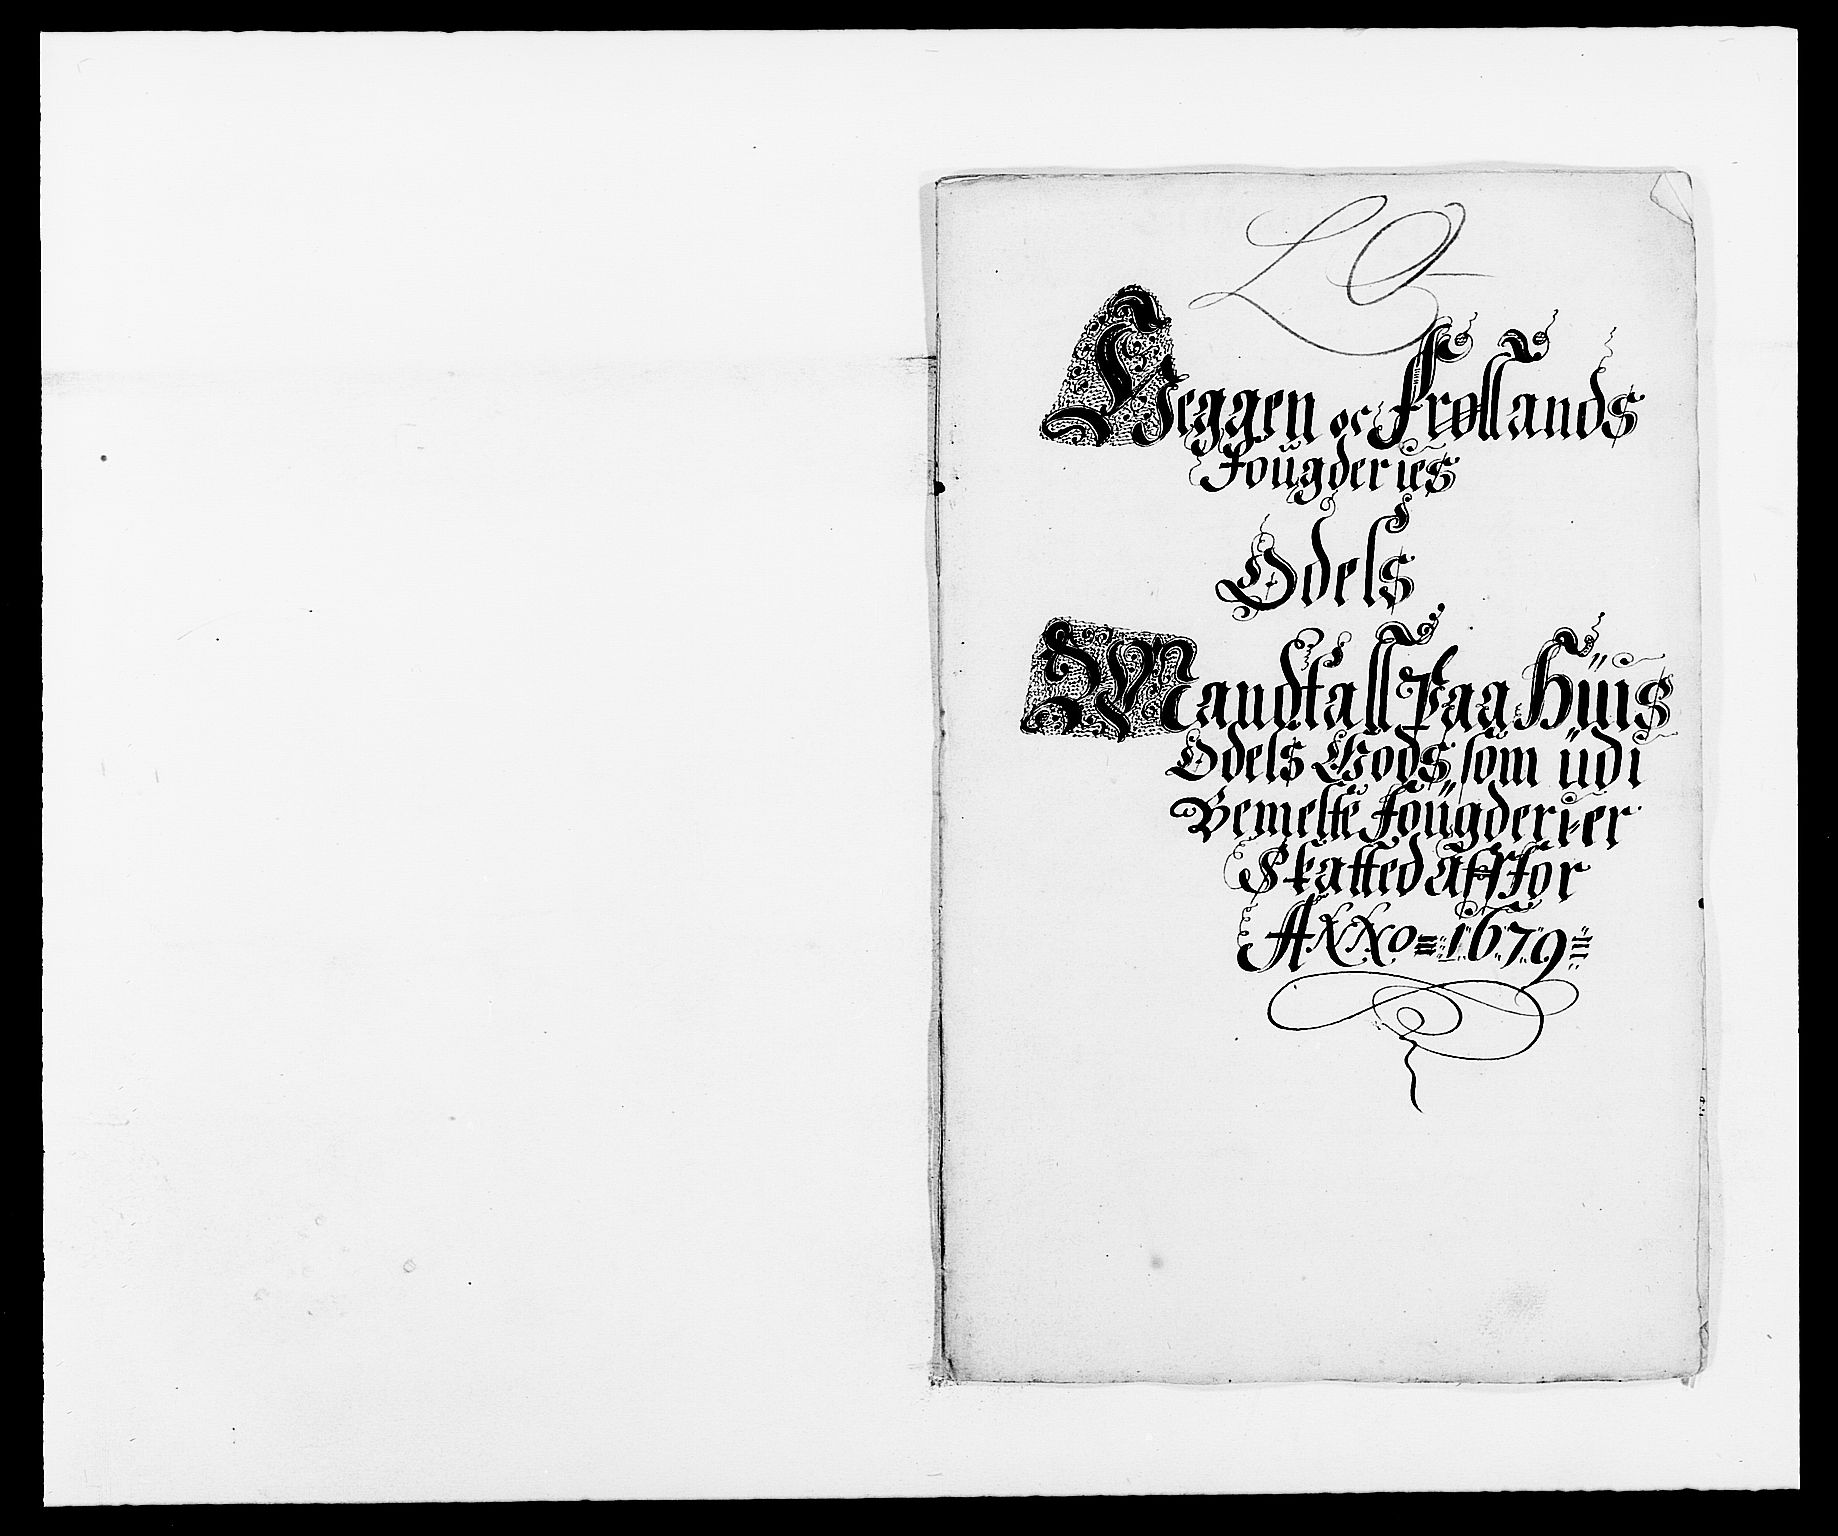 Heggen oc Frøllands
Foügderies
Odels
Mandtall Paa Hüüs
Odels Gods, som üdi
Bemelte Foügderi-er
Skatted äff for
Anno = 1679 =